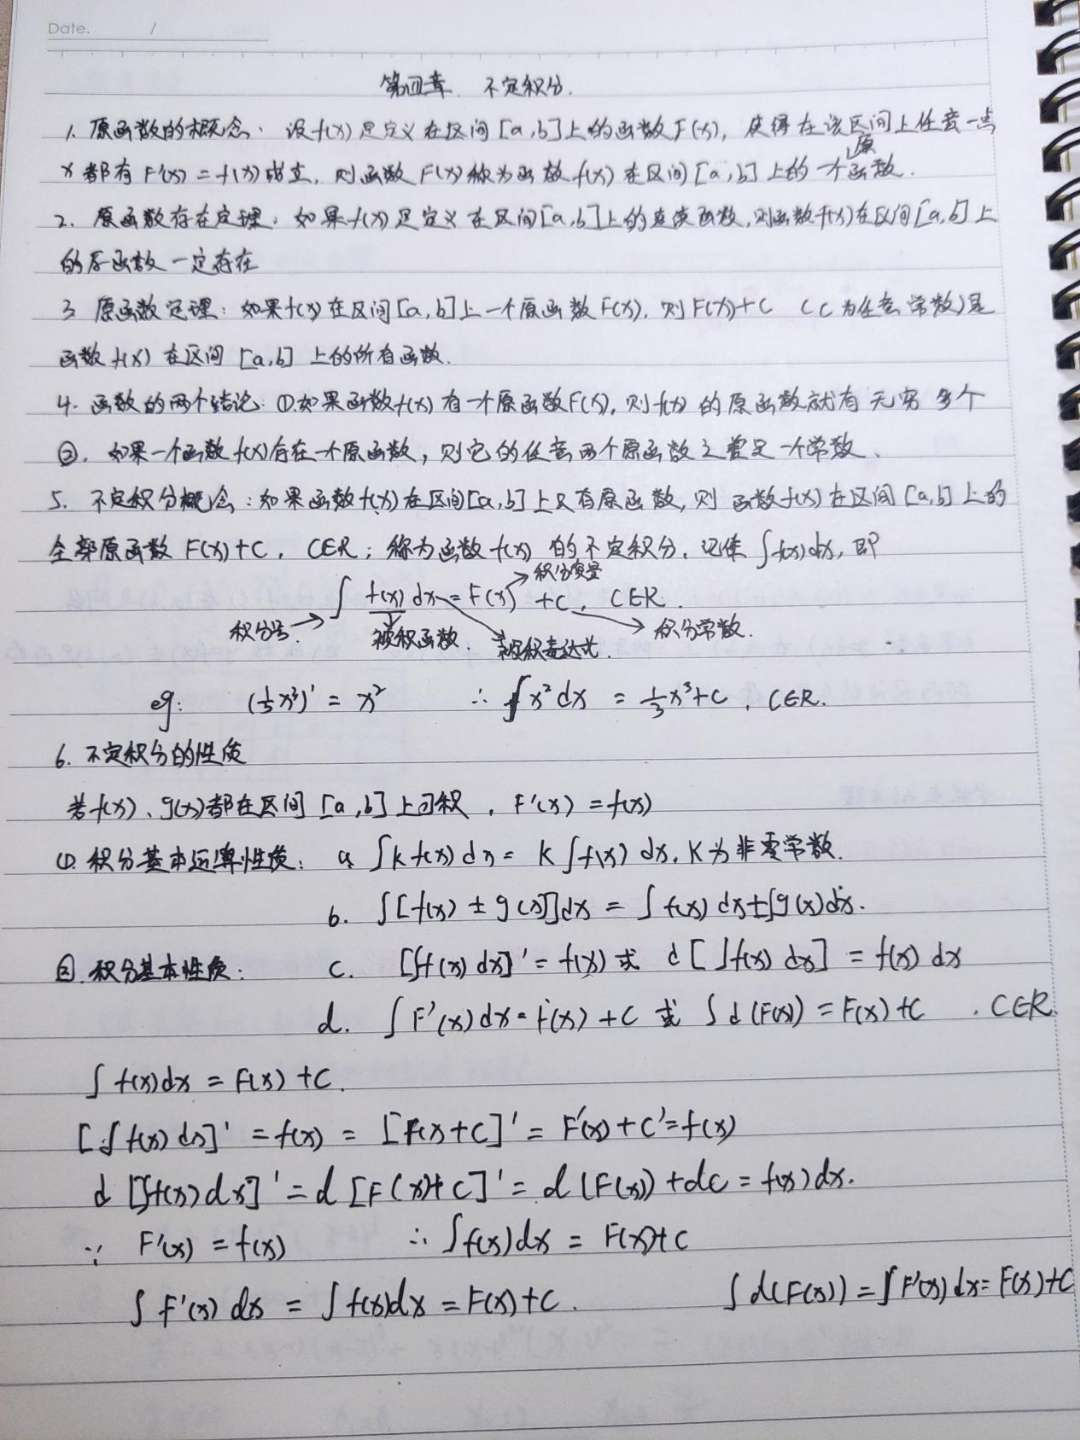 Date. /
第四章. 不定积分.
1. 原函数的概念. 设f(x)是定义在区间[a,b]上的函数F(x), 使得在该区间上任意一点
x都有F'(x)=f(x)成立, 则函数F(x)称为函数f(x)在区间[a,b]上的一个原函数.
2. 原函数存在定理: 如果f(x)是定义在区间[a,b]上的连续函数,则函数f(x)在区间[a,b]上
的原函数一定存在
3 原函数定理: 如果f(x)在区间[a,b]上一个原函数F(x), 则F(x)+C (C为任意常数)是
函数f(x)在区间[a,b]上的所有函数.
4. 函数的两个结论: ①如果函数f(x)有一个原函数F(x), 则f(x)的原函数就有无穷多个
②. 如果一个函数f(x)存在一个原函数, 则它的任意两个原函数之差是一个常数.
5. 不定积分概念: 如果函数f(x)在区间[a,b]上只有原函数, 则函数f(x)在区间[a,b]上的
全部原函数F(x)+C, C∈R; 称为函数f(x)的不定积分, 记作∫f(x)dx, 即
积分变量
∫f(x)dx=F(x)+C, C∈R.
积分号. 被积函数. 被积表达式. 积分常数.
eg: (⅓x³)'=x² ∴∫x²dx=⅓x³+C, C∈R.
6. 不定积分的性质
若f(x)、g(x)都在区间[a,b]上可积, F'(x)=f(x)
①. 积分基本运算性质: a ∫kf(x)dx=k∫f(x)dx, K为非零常数.
b. ∫[f(x)±g(x)]dx=∫f(x)dx±∫g(x)dx.
②. 积分基本性质: c. [∫f(x)dx]'=f(x)或 d[∫f(x)dx]=f(x)dx
d. ∫F'(x)dx=F(x)+C 或 ∫d(F(x))=F(x)+C, C∈R
∫f(x)dx=F(x)+C.
[∫f(x)dx]'=f(x)=[F(x+C]'=F'(x)+C'=f(x)
d[∫f(x)dx]'=d[F(x)+C]'=d(F(x))+dC=f(x)dx.
∵ F'(x)=f(x) ∴∫f(x)dx=F(x)+C
∫F'(x)dx=∫f(x)dx=F(x)+C. ∫d(F(x))=∫F'(x)dx=F(x)+C